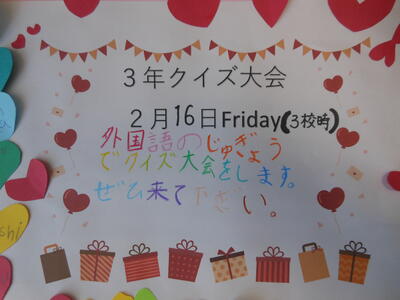 3年クイズ大会
2月16日Friday(3校時)
外国語のじゅぎょう
でクイズ大会をします。
ぜひ来て下さい。
shi